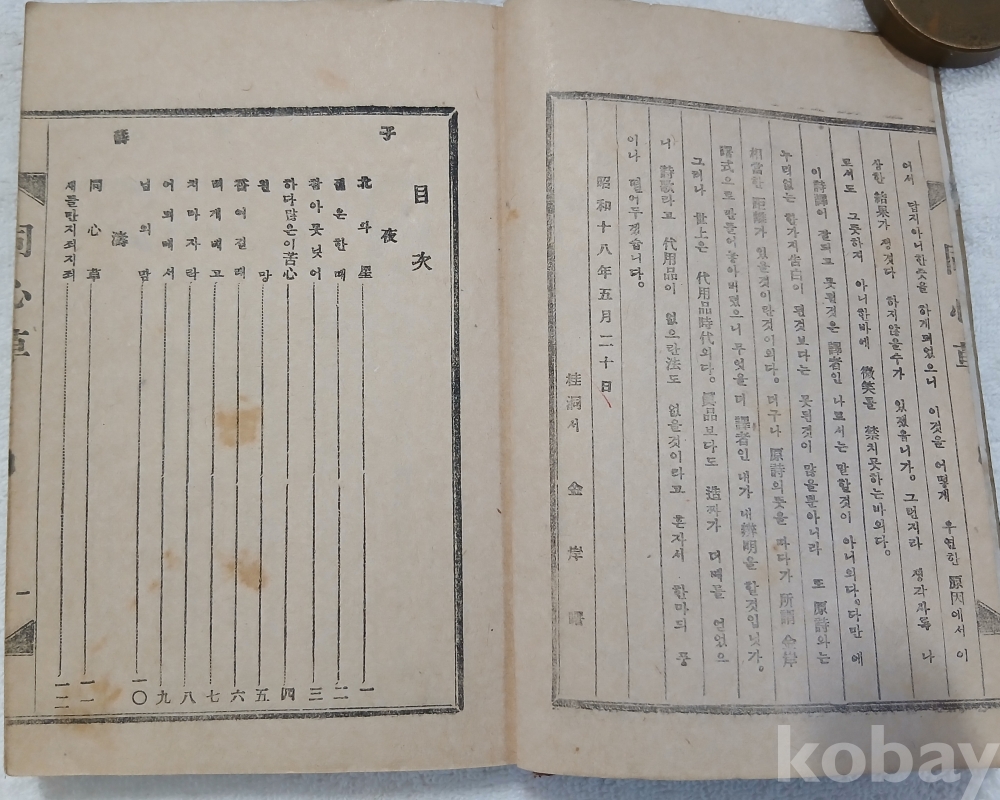 어서 답지아니한뜻을 하게되었으니 이것을 어떻게 우연한 原因에서 이
상한 結果가 생겻다 하지 않을수가 있겠읍니가。그런지라 생각사록 나
로서도 그릇하지 아니한바에 微笑를 禁치못하는바외다。
이 詩譯이 잘되고 못된것은 譯者인 나로서는 말할것이 아니외다。다만 에
누리없는 한가지 告白이 된것보다는 못된것이 많을뿐아니라 또 原詩와는
相當한 距離가 있을것이란것이외다。더구나 原詩의 뜻을 따다가 所謂 金岸
曙式으로 만들어놓아버렸으니 무엇을 더 譯者인 내가 내 辯明을 할것입닛가。
그러나 世上은 代用品時代외다。 보다도 造까가 더때를 얻었으
니 詩歌라고 代用品이 없으란法도 없을것이라고 혼자서 한마듸 풍
이나 떨어두겠습니다。
昭和十八年五月二十日
桂洞서 金岸曙
同心草
目次
子夜
北와星 一
은한때 二
잡아못넛어 三
하다많은이苦心 四
원망 五
잡여길래 六
떠게배고 七
치마자락 八
어뙤메서 九
님의맘 一〇
薛濤
同心草 一一
새들만지죄지죄 一二
同心草
一